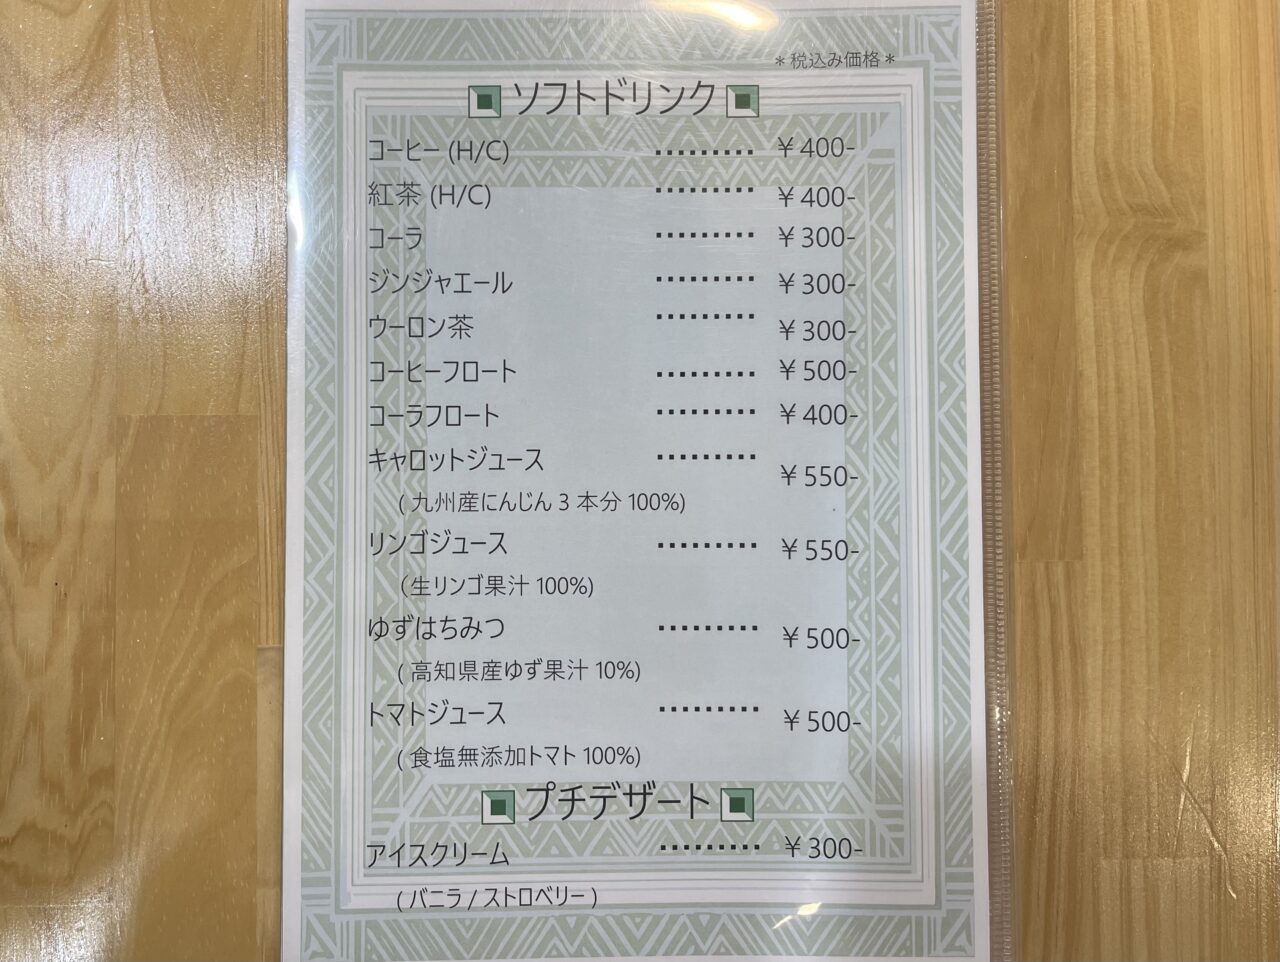 ＊税込み価格＊
ソフトドリンク
コーヒー (H/C) ········· ￥400-
紅茶 (H/C) ········· ￥400-
コーラ ········· ￥300-
ジンジャエール ········· ￥300-
ウーロン茶 ········· ￥300-
コーヒーフロート ········· ￥500-
コーラフロート ········· ￥400-
キャロットジュース ········· ￥550-
( 九州産にんじん 3 本分 100%)
リンゴジュース ········· ￥550-
（生リンゴ果汁 100%)
ゆずはちみつ ········· ￥500-
( 高知県産ゆず果汁 10%)
トマトジュース ········· ￥500-
( 食塩無添加トマト 100%)
プチデザート
アイスクリーム ········· ￥300-
( バニラ / ストロベリー )